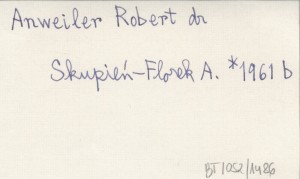 Anweiler Robert dr
Skupień-Florek A. *1961 b
BT1052/1486